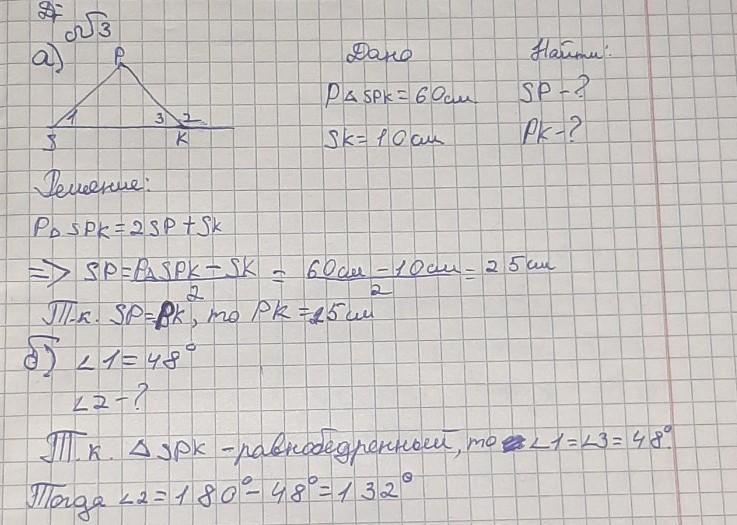 №3
а)
P
1
3
2
S
K
Дано
P△SPK=60см
SK=10см
Найти:
SP-?
PK-?
Решение:
P△SPK=2SP+SK
=> SP=P△SPK-SK/2 = 60см-10см/2 = 25см
Т.к. SP=PK, то PK=25см
б) ∠1=48°
∠2-?
Т.к. △SPK-равнобедренный, то ∠1=∠3=48°.
Тогда ∠2=180°-48°=132°